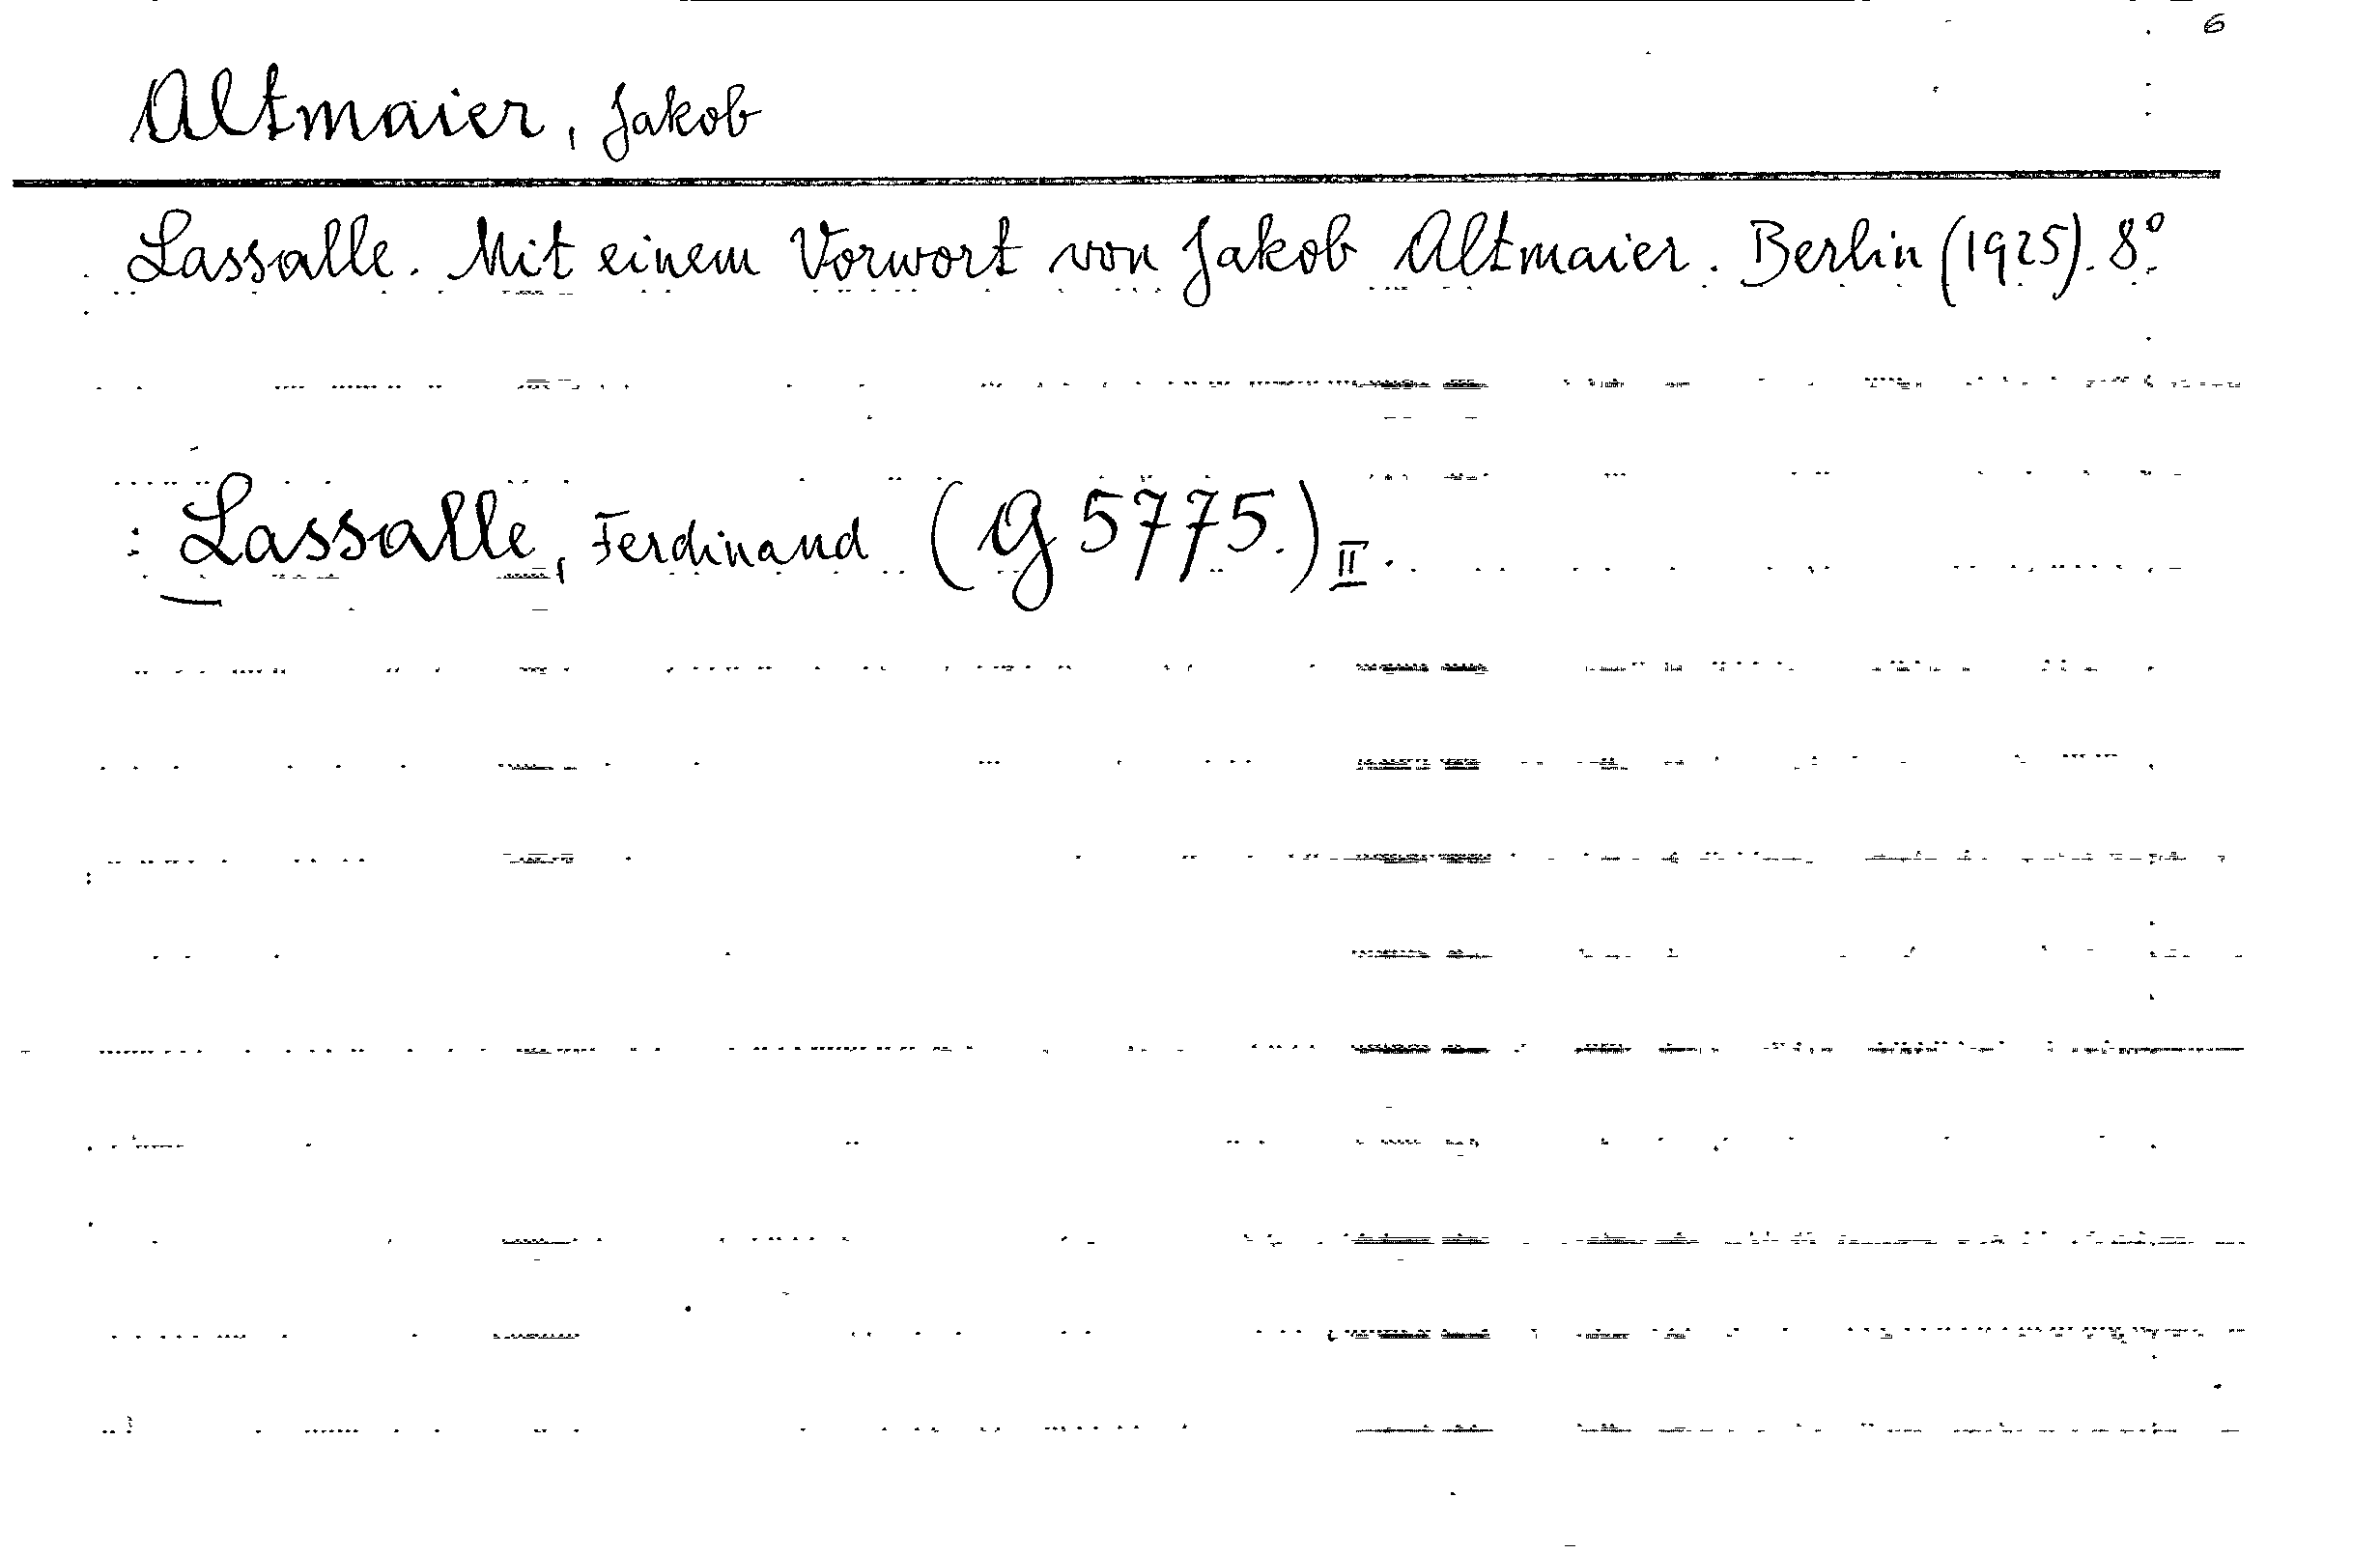 6
Altmaier, Jakob
Lassalle. Mit einem Vorwort von Jakob Altmaier. Berlin (1925). 8°.
: Lassalle, Ferdinand (G 5775.) II.